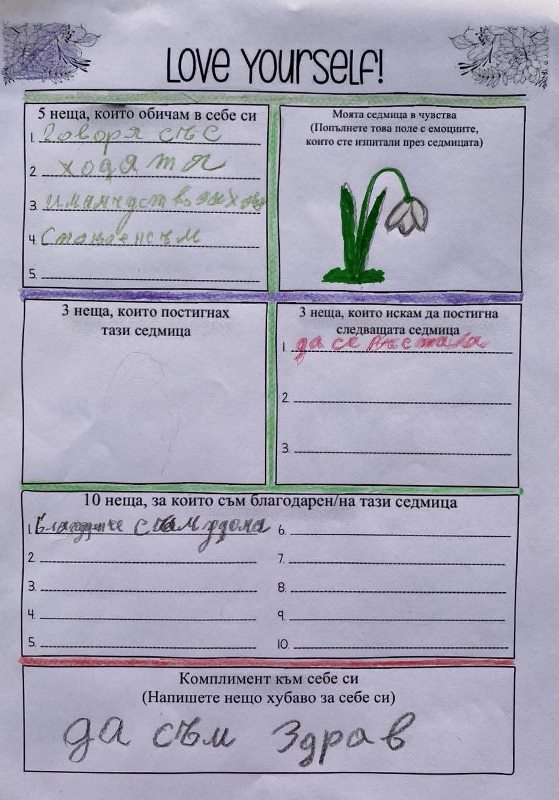 LOVE YOURSELF!
5 неща, които обичам в себе си
1. Говоря със
2. ходата
3.
4. Спокоен съм
5.
Моята седмица в чувства
(Попълнете това поле с емоциите,
които сте изпитали през седмицата)
3 неща, които постигнах
тази седмица
3 неща, които искам да постигна
следващата седмица
1. да се
2.
3.
10 неща, за които съм благодарен/на тази седмица
1. съм удома
2.
3.
4.
5.
6.
7.
8.
9.
10.
Комплимент към себе си
(Напишете нещо хубаво за себе си)
да съм здрав